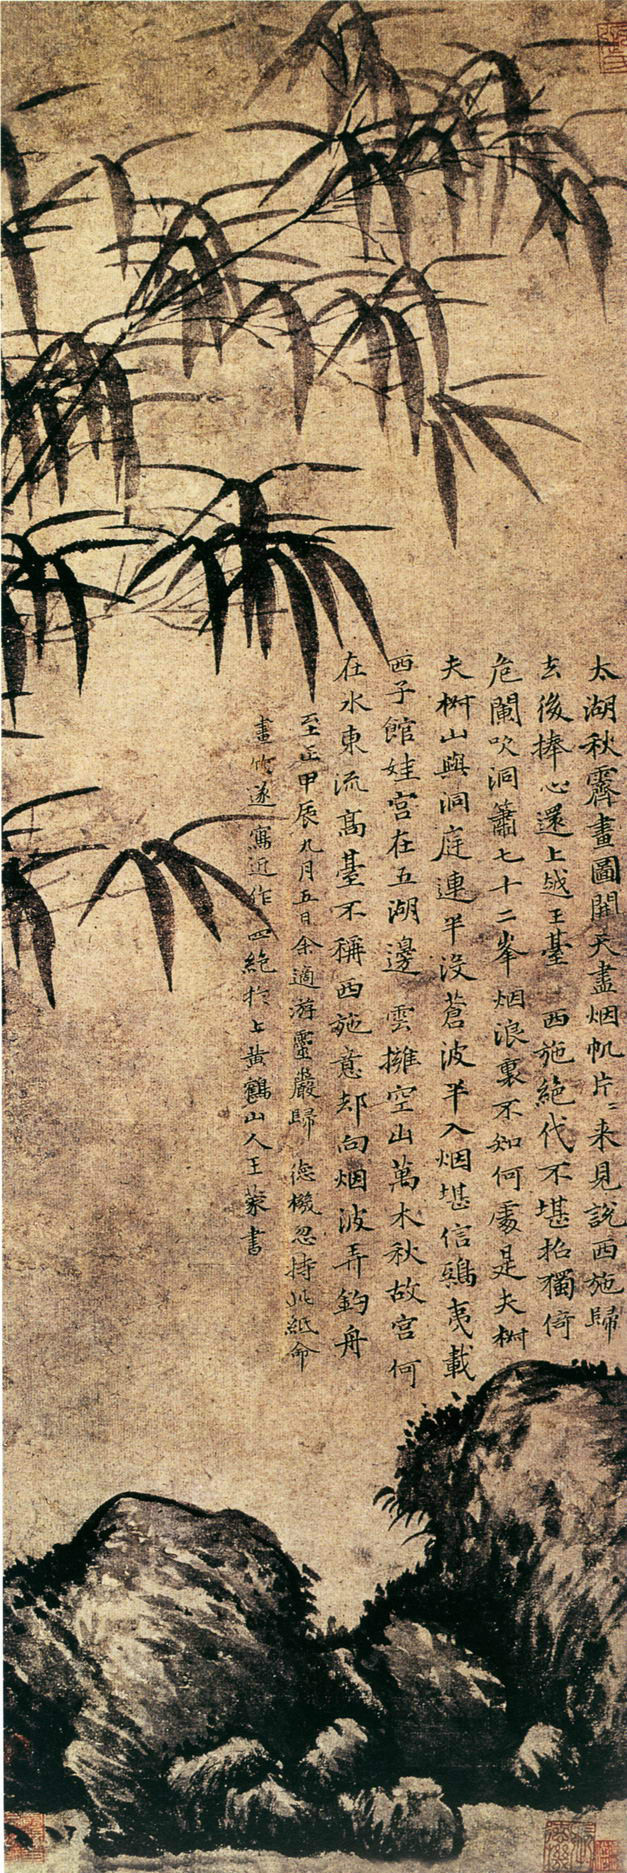 太湖秋霽畫圖開天盡烟帆片〻来見說西施歸
去後捧心還上越王臺 西施絶代不堪招獨倚
危闌吹洞簫七十二峯烟浪裏不知何處是夫椒
夫椒山與洞庭連半没蒼波半入烟堪信鴟夷載
西子館娃宮在五湖邊 雲擁空山萬木秋故宮何
在水東流高臺不稱西施意却向烟波弄釣舟
至正甲辰九月五日余適游靈巖歸 德機忽持此紙命
畫竹遂寫近作四絶於上黄鶴山人王蒙書